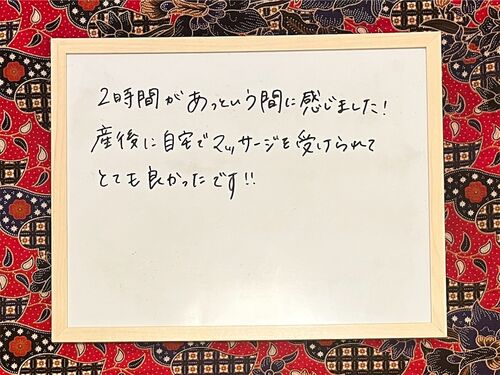 2時間があっという間に感じました!
産後に自宅でマッサージを受けられて
とても良かったです!!